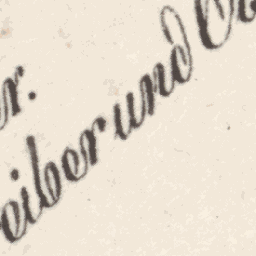 r.
eiber und